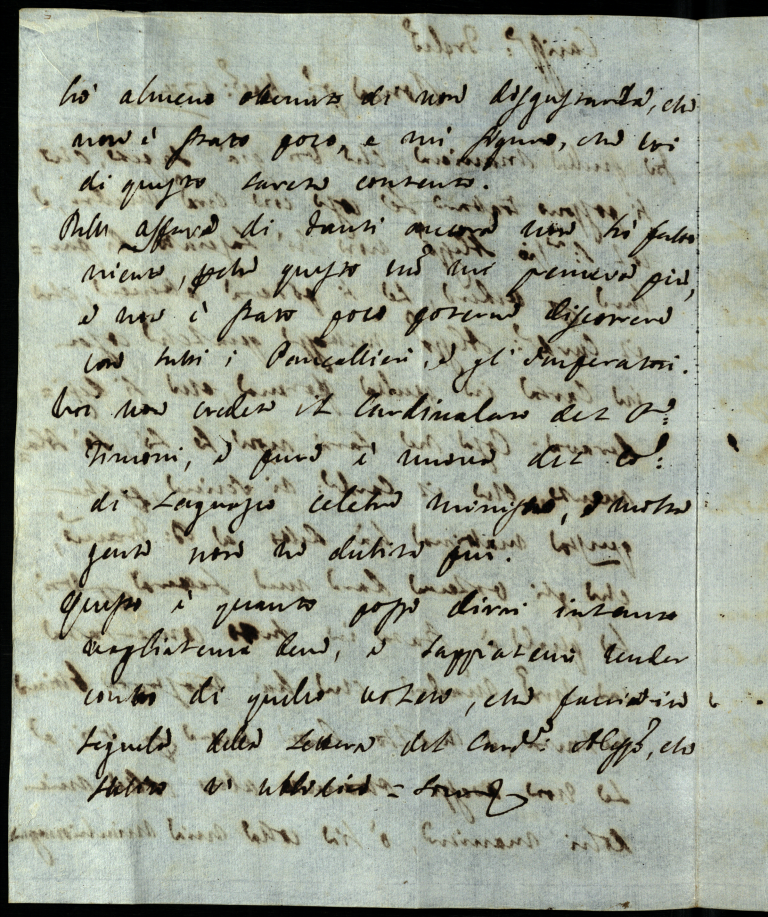 hò almeno ottenuto di non disgustarla, che
non è stato poco, e mi figuro, che voi
di questo sarete contento.
Nell'affare di Santi ancora non hò fatto
niente, perche questo non mi premeva più,
e non è stato poco poterne discorrere
con tutti i Pancallieri, e gl'Imperatori.
Voi non credete il Cardinalato del P.
Timoni, e pure è nuova del Co:
di Lagnasco celebre ministro, e molta
gente non ne dubita qui.
Questo è quanto posso dirvi intanto
vogliatemi bene, e sappiatemi render
conto di quello volete, che facciasi in
seguito della lettera del Card. Aless., che
subito v'ubbidirò =